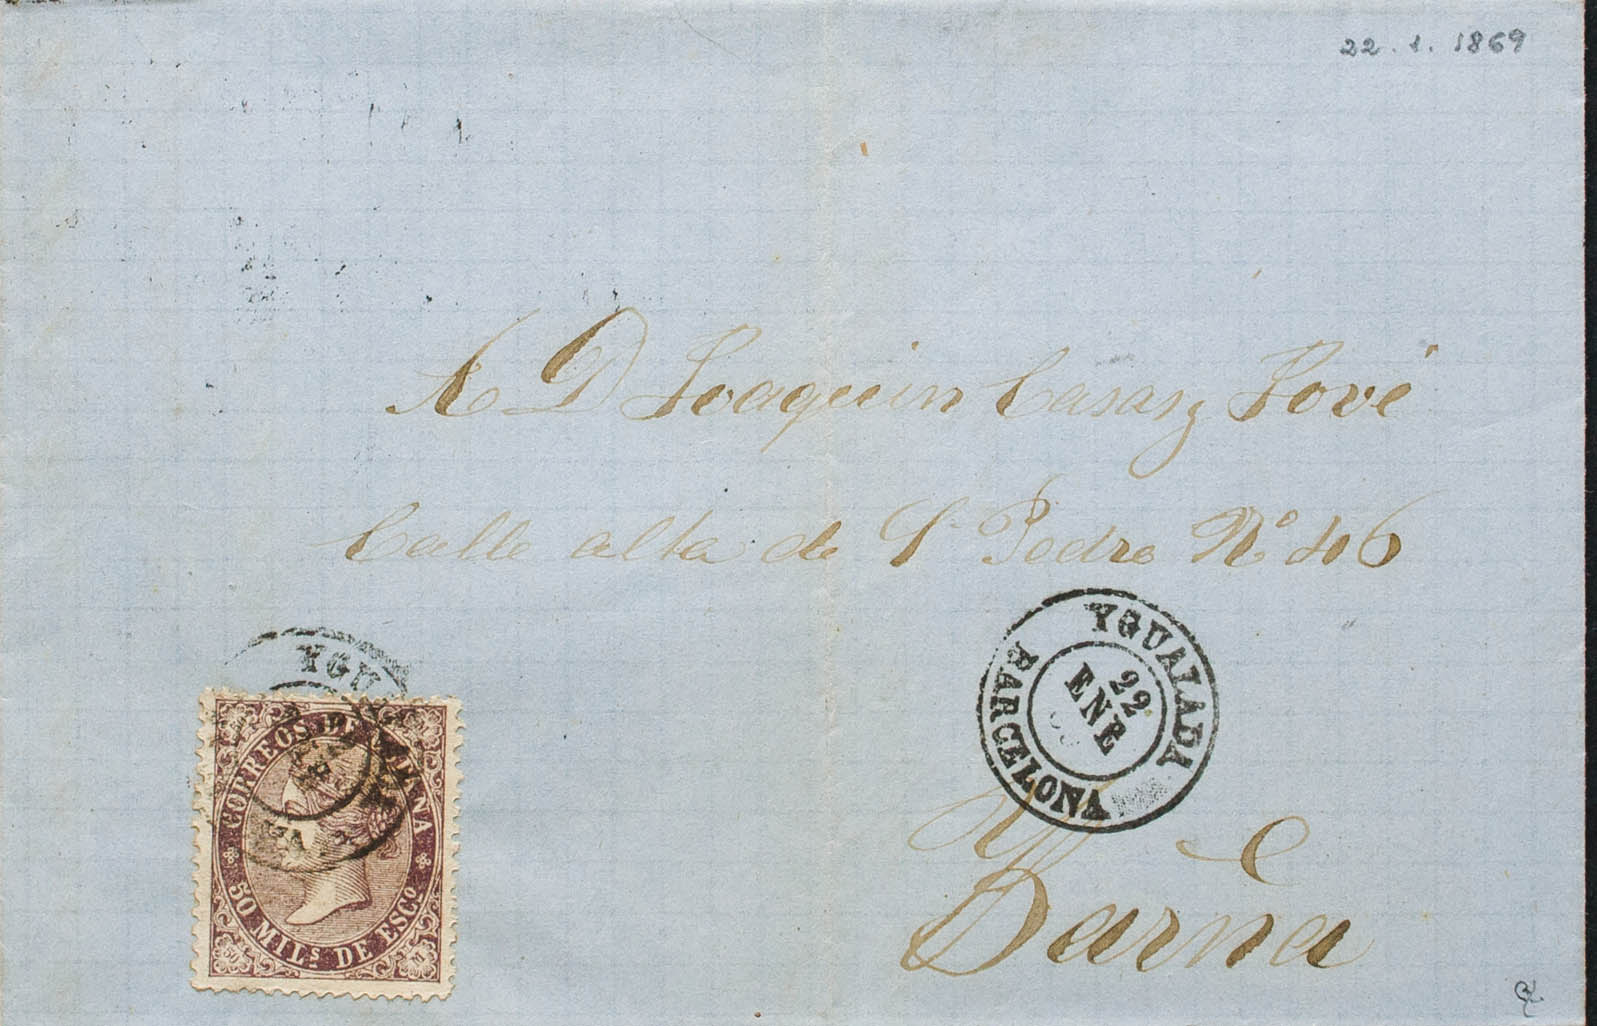 22.1.1869
A D Joaquin Casas y Jové
Calle alta de Sn Pedro No 46
YGUALADA
22
ENE
BARCELONA
YGU
CORREOS DE
50 MILS DE ESCO
Barna